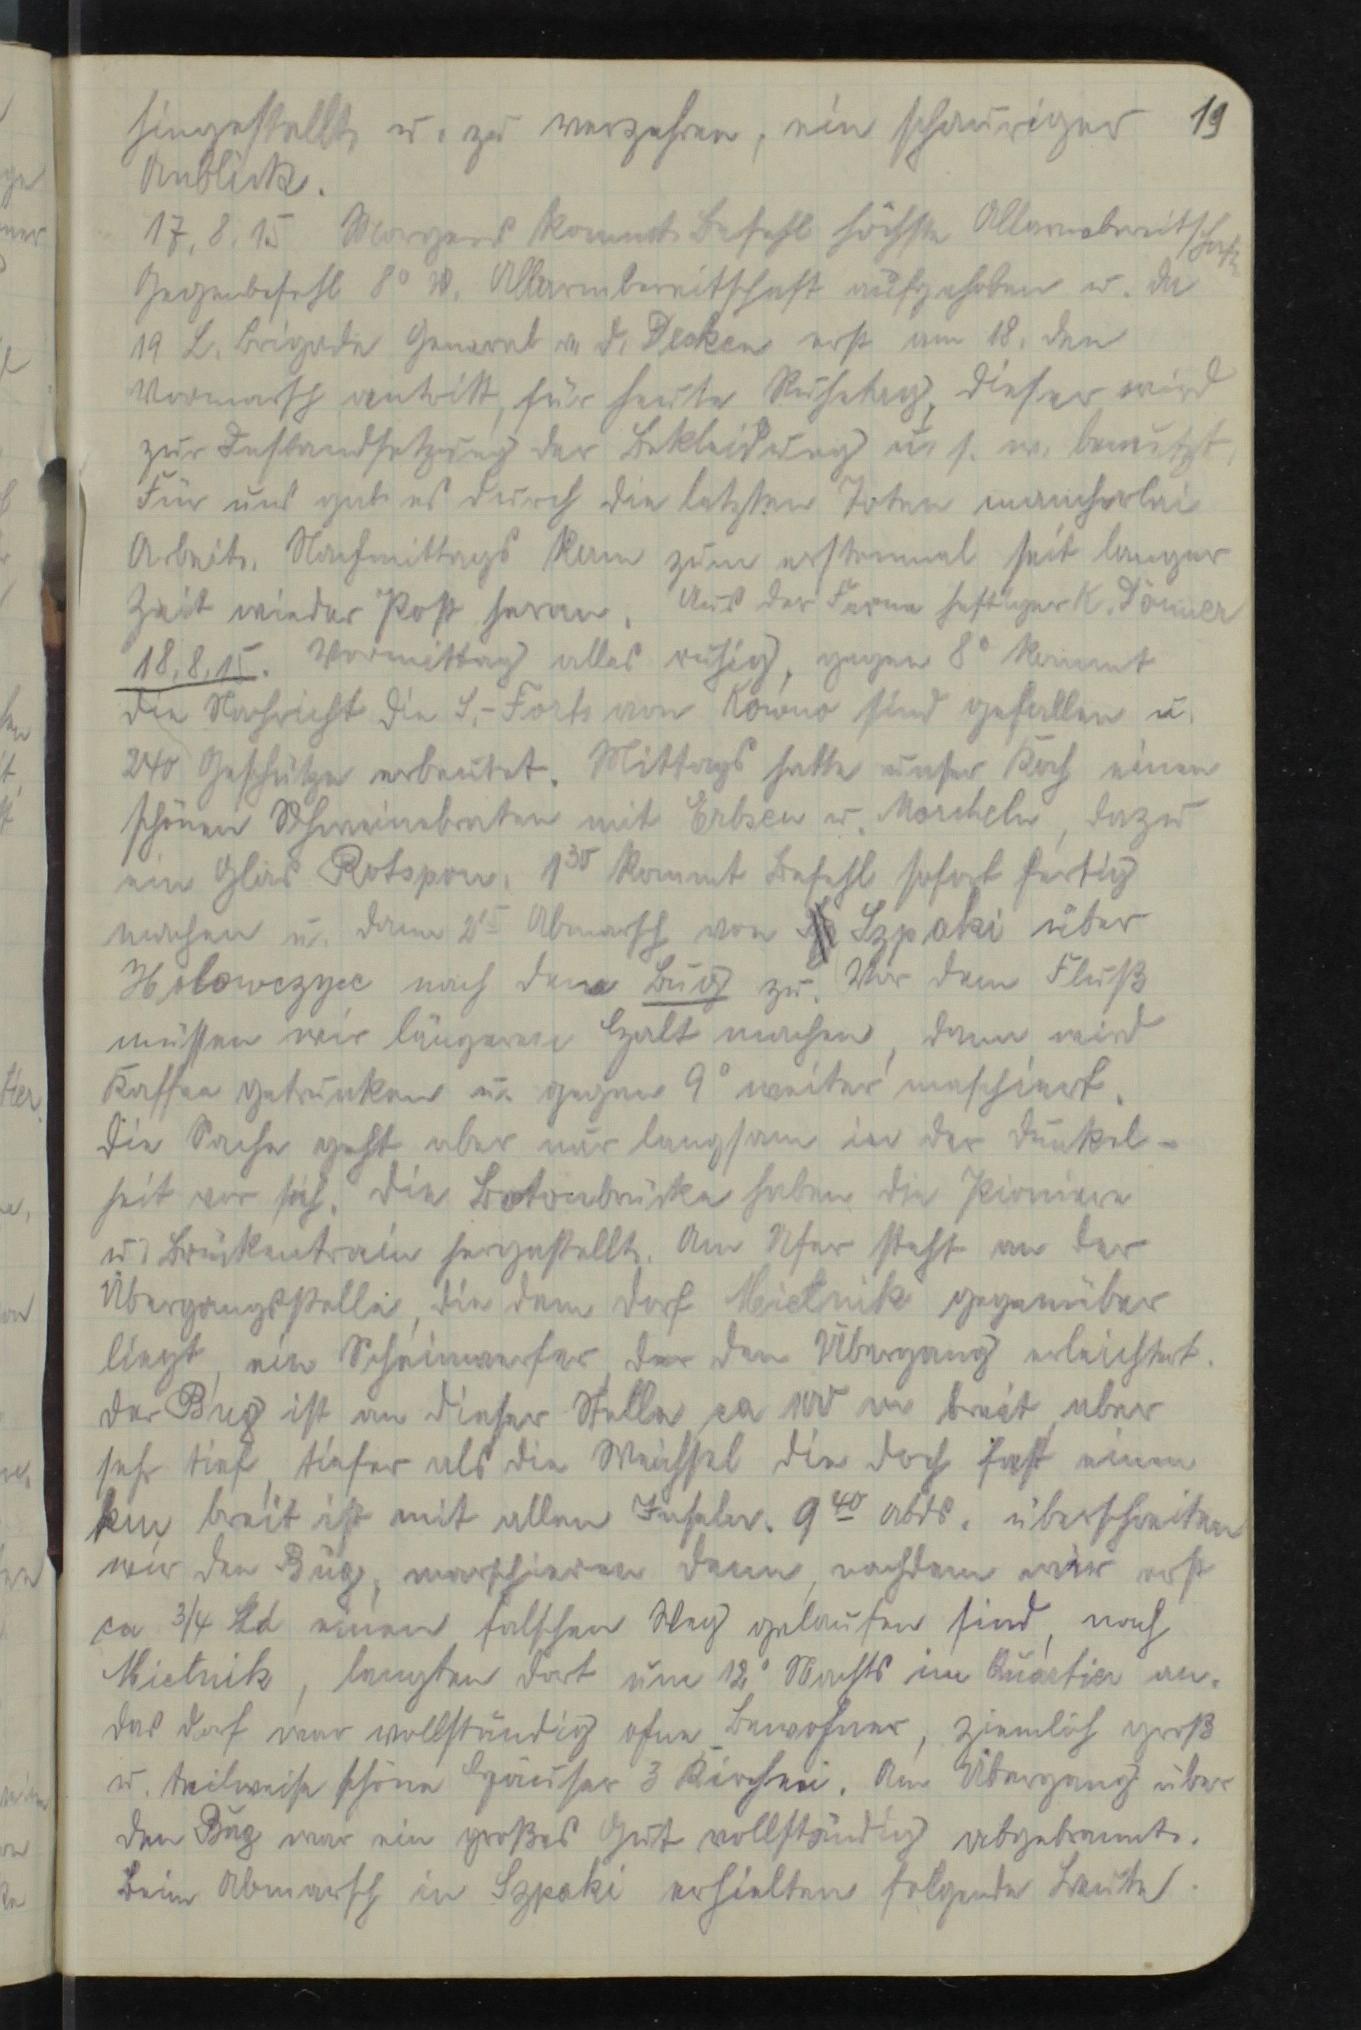 19
hingestellt u. zu verzehren, ein schauriger
Anblick.
17.8.15 Morgens kommt Befehl höchste Allarmbereitschaft
Gegenbefehl 8° V. Allarmbereitschaft aufgehoben u. da
19 L. Brigade General v. d. Decken erst am 18. den
Vormarsch antritt, für heute Ruhetag, dieser wird
zur Instandsetzung der Bekleidung u. s. w. benutzt.
Für uns gab es durch die letzten Toten mancherlei
Arbeit. Nachmittags kam zum erstenmal seit langer
Zeit wieder Post heran. Aus der Ferne heftiger K. Donner
18.8.15. Vormittag alles ruhig, gegen 8° kommt
die Nachricht die S.-Forts von Kowno sind gefallen u.
240 Geschütze erbeutet. Mittags hatte unser Koch einen
schönen Schweinebraten mit Erbsen u. Morcheln, dazu
ein Glas Rotspon. 1³⁰ kommt Befehl sofort fertig
machen u. dann 2¹⁵ Abmarsch von Szpaki über
Holowczyce nach dem Bug zu. Vor dem Fluß
müssen wir längeren Halt machen, dann wird
Kaffee getrunken u. gegen 9° weiter maschiert.
Die Sache geht aber nur langsam in der Dunkel-
heit vor sich. Die Botonbrücke haben die Pioniere
u. Brückentrain hergestellt. Am Ufer steht an der
Übergangsstelle, die dem Dorf Mielnik gegenüber
liegt, ein Scheinwerfer, der den Übergang erleichtert.
Der Bug ist an dieser Stelle ca 100 m breit, aber
sehr tief, tiefer als die Weichsel die doch fast einen
km breit ist mit allen Inseln. 9⁴⁰ abds. überschreiten
wir den Bug, marschieren dann, nachdem wir erst
ca 3/4 Std einen falschen Weg gelaufen sind, nach
Mielnik, langten dort um 12° Nachts im Quartier an.
Das Dorf war vollständig ohne Bewohner, ziemlich groß
u. teilweise schöne Häuser 3 Kirchen. Am Übergang über
den Bug war ein großes Gut vollständig abgebrannt.
Beim Abmarsch in Szpaki erhielten folgende Leute